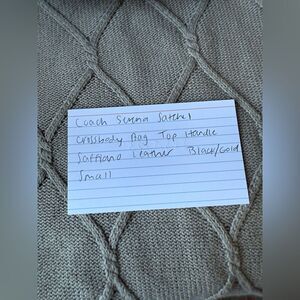 Coach Sierra Satchel
Crossbody Bag Top Handle
Saffiano Leather Black/Gold
Small